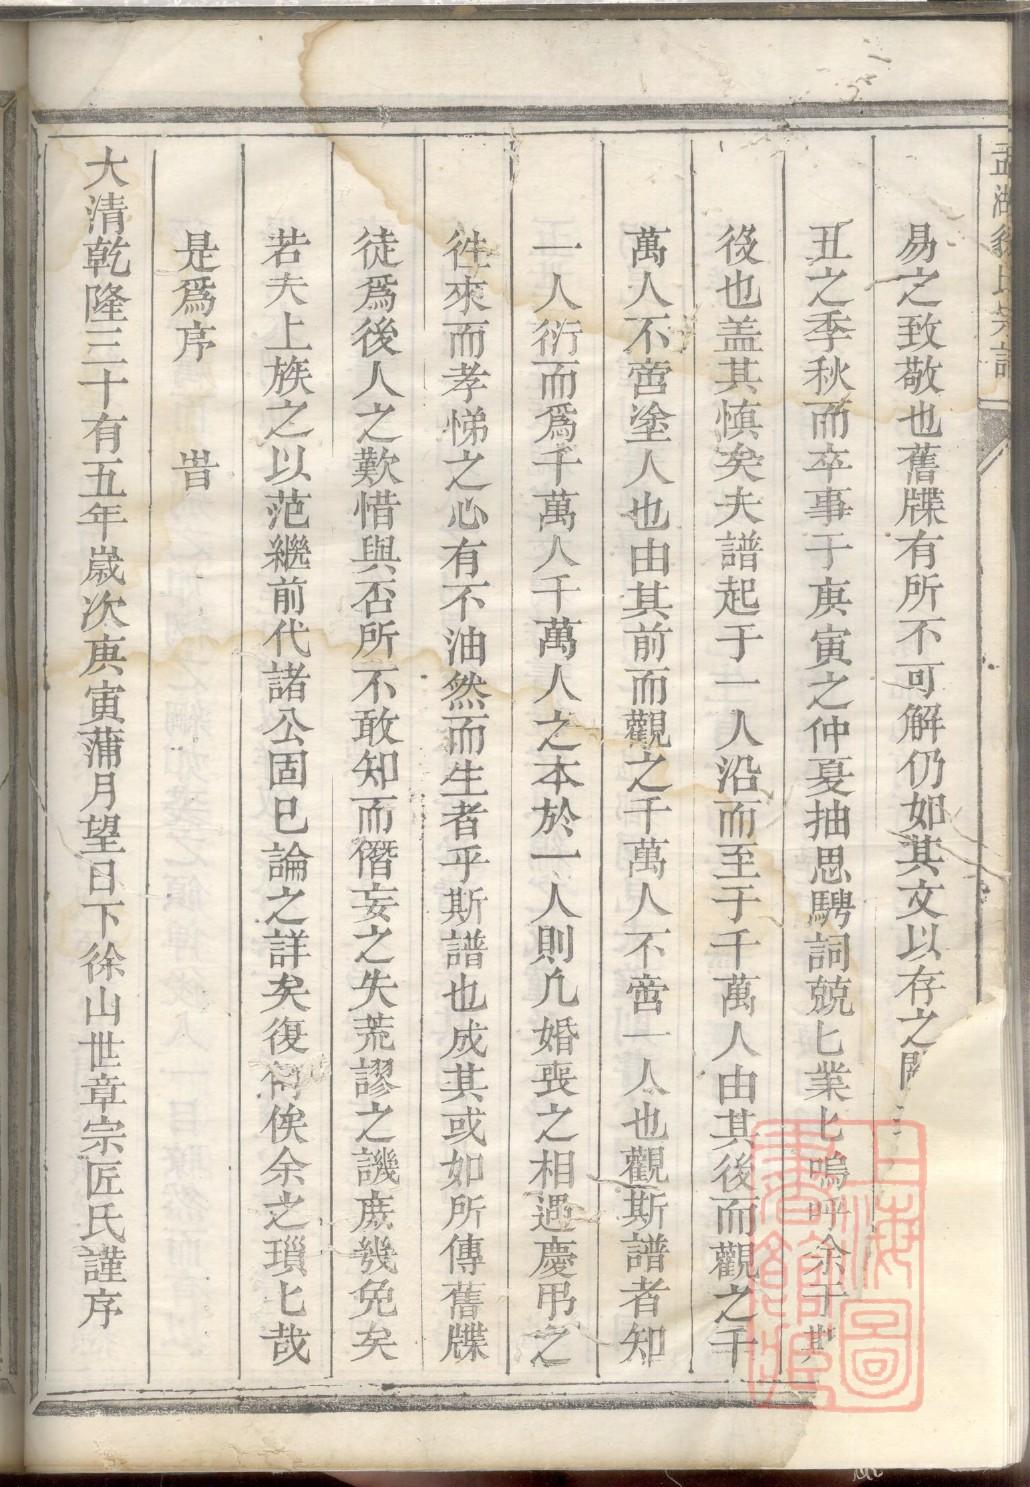 孟湖貌氏宗譜
易之致敬也舊牒有所不可解仍如其文以存之
丑之季秋而卒事于庚寅之仲夏抽思騁詞兢匕業匕嗚呼余于斯
後也盖其慎矣夫譜起于一人沿而至于千萬人由其後而觀之千
萬人不啻塗人也由其前而觀之千萬人不啻一人也觀斯譜者知
一人衍而爲千萬人千萬人之本於一人則凡婚喪之相遇慶弔之
徃來而孝悌之心有不油然而生者乎斯譜也成其或如所傳舊牒
徒爲後人之歎惜與否所不敢知而僭妄之失荒謬之譏庶幾免矣
若夫上族之以范繼前代諸公固已論之詳矣復何俟余之瑣匕哉
是爲序 旹
大清乾隆三十有五年歲次庚寅蒲月望日下徐山世章宗匠氏謹序
上海圖書館藏